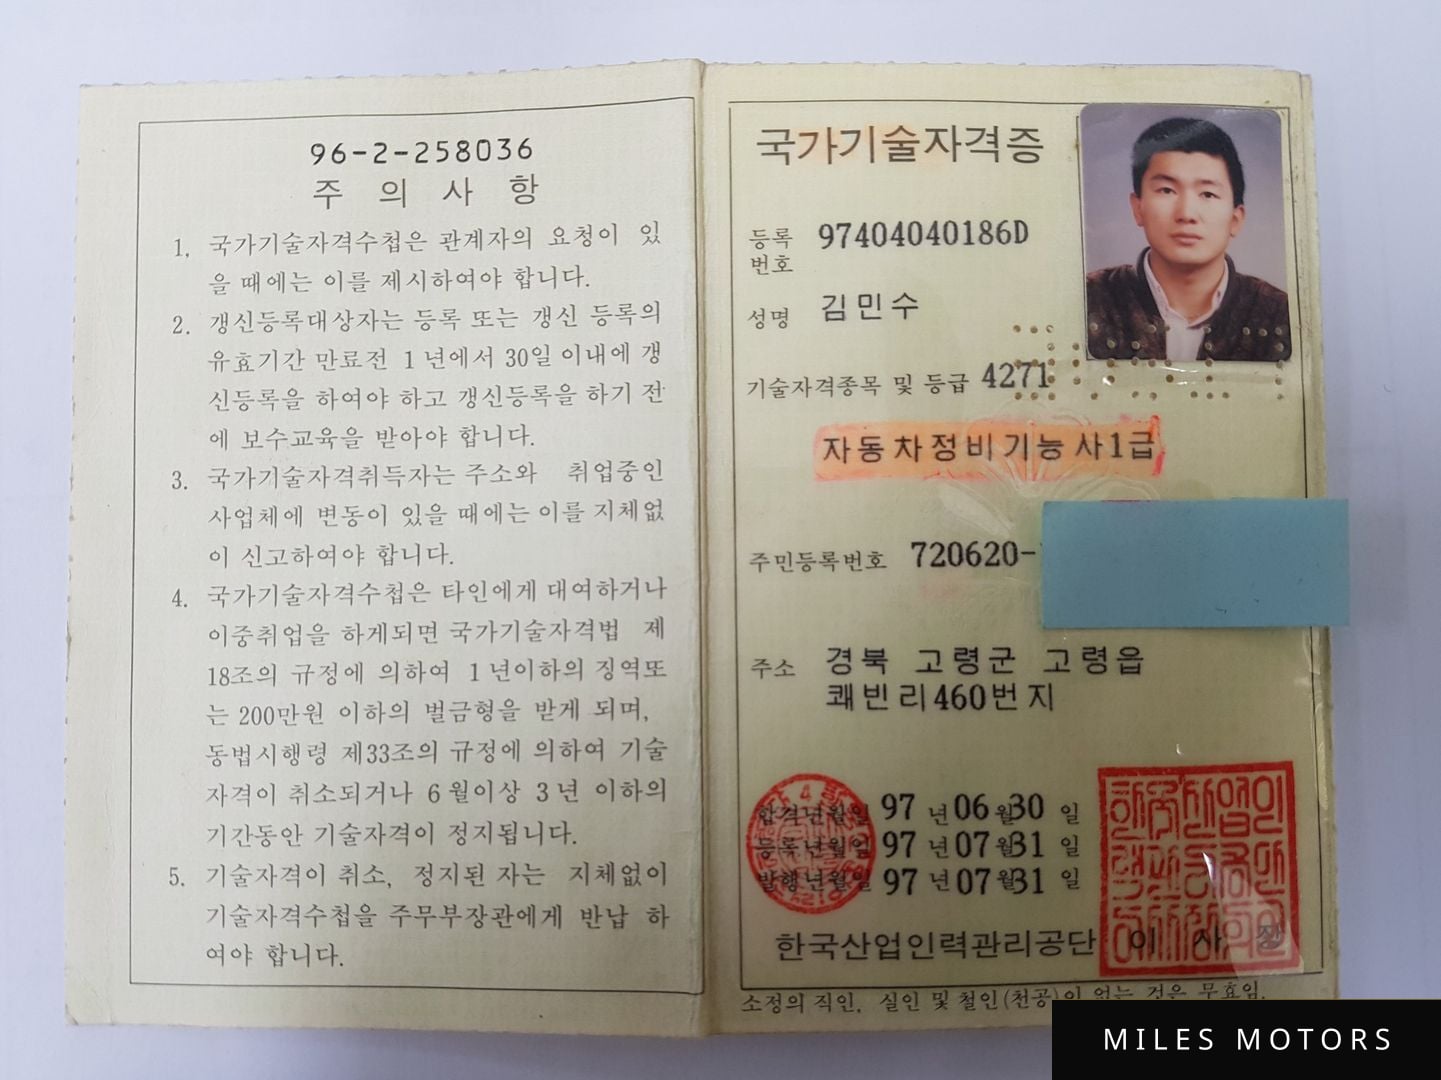 96-2-258036
주 의 사 항
1. 국가기술자격수첩은 관계자의 요청이 있
을 때에는 이를 제시하여야 합니다.
2. 갱신등록대상자는 등록 또는 갱신 등록의
유효기간 만료전 1년에서 30일 이내에 갱
신등록을 하여야 하고 갱신등록을 하기 전
에 보수교육을 받아야 합니다.
3. 국가기술자격취득자는 주소와 취업중인
사업체에 변동이 있을 때에는 이를 지체없
이 신고하여야 합니다.
4. 국가기술자격수첩은 타인에게 대여하거나
이중취업을 하게되면 국가기술자격법 제
18조의 규정에 의하여 1년이하의 징역또
는 200만원 이하의 벌금형을 받게 되며,
동법시행령 제33조의 규정에 의하여 기술
자격이 취소되거나 6월이상 3년 이하의
기간동안 기술자격이 정지됩니다.
5. 기술자격이 취소, 정지된 자는 지체없이
기술자격수첩을 주무부장관에게 반납 하
여야 합니다.
국가기술자격증
등록번호 97404040186D
성명 김민수
기술자격종목 및 등급 4271
자동차정비기능사1급
주민등록번호 720620-
주소 경북 고령군 고령읍
쾌빈리460번지
합격년월일 97 년 06 월 30 일
등록년월일 97 년 07 월 31 일
발행년월일 97 년 07 월 31 일
한국산업인력관리공단 이 사 장
소정의 직인, 실인 및 철인(천공)이 없는 것은 무효임.
MILES MOTORS